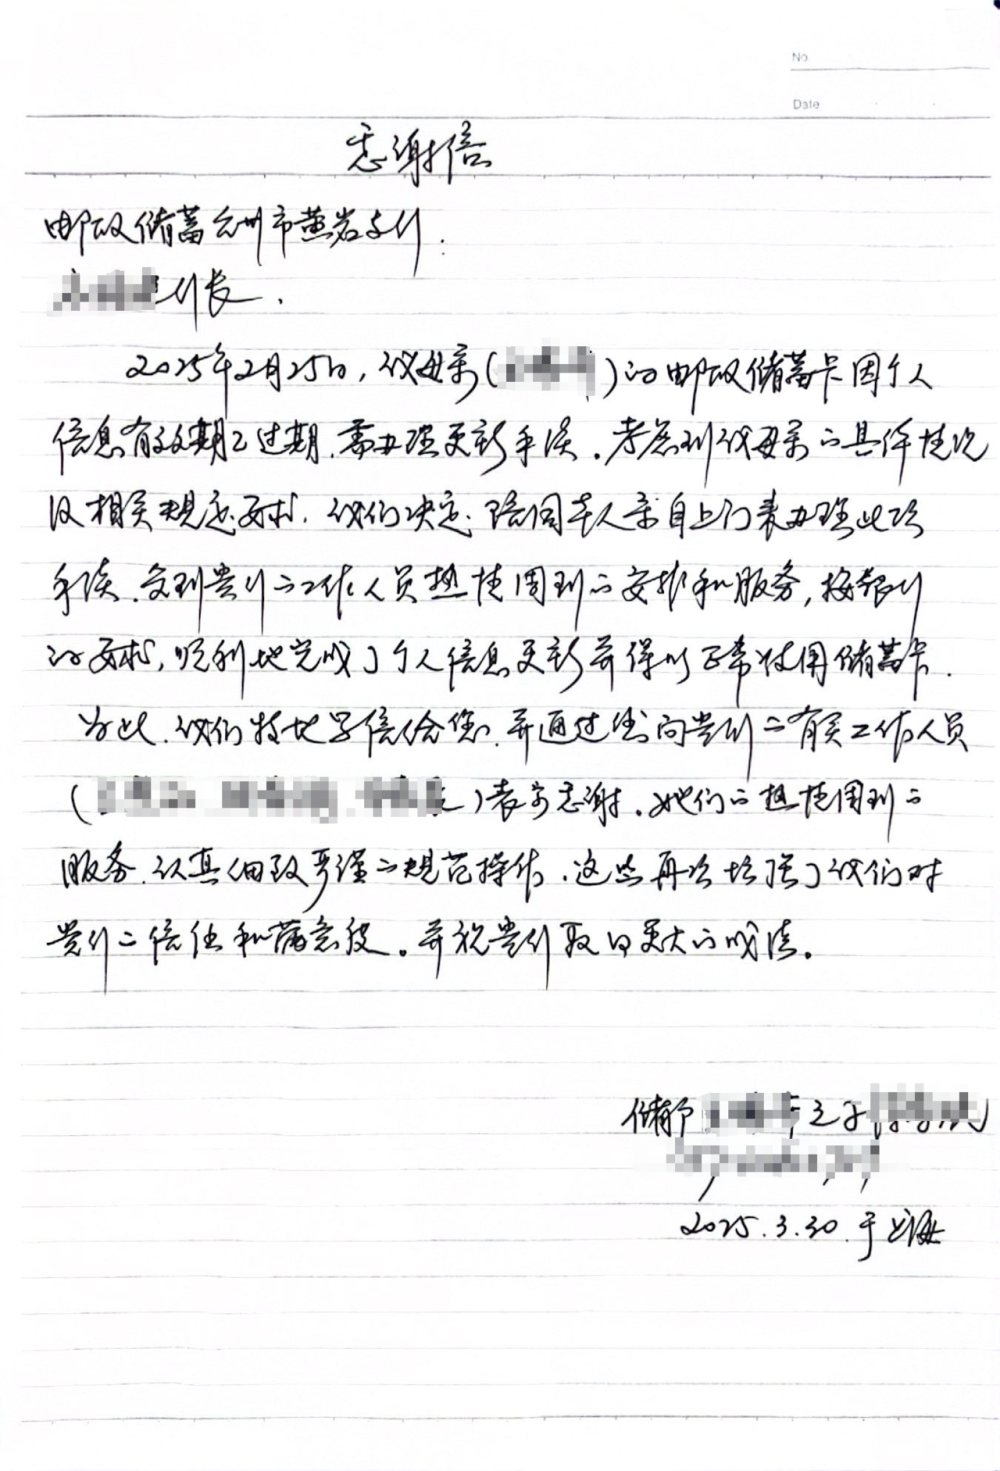 No
Date
感谢信
邮政储蓄台州市黄岩支行:
行长.
2025年2月25日,我母亲()的邮政储蓄卡因个人
信息有效期已过期.需办理更新手续.考虑到我母亲的具体情况
及相关规定要求.我们决定:陪同本人亲自上门来办理此项
手续.受到贵行的工作人员热情周到的安排和服务,按银行
的要求,顺利地完成了个人信息更新并得以正常使用储蓄卡.
为此.我们特地写信给您.并通过您向贵行的有关工作人员
()表示感谢.她们的热情周到的
服务.认真细致严谨的规范操作.这些再次增强了我们对
贵行的信任和满意度。并祝贵行取得更大的成绩。
储户之子
2025.3.30.于上海